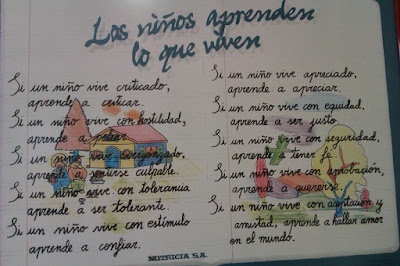 Los niños aprenden
lo que viven
Si un niño vive criticado,
aprende a criticar.
Si un niño vive con hostilidad,
aprende a pelear.
Si un niño vive avergonzado,
aprende a sentirse culpable.
Si un niño vive con tolerancia
aprende a ser tolerante.
Si un niño vive con estímulo
aprende a confiar.
Si un niño vive apreciado,
aprende a apreciar.
Si un niño vive con equidad,
aprende a ser justo.
Si un niño vive con seguridad,
aprende a tener fe.
Si un niño vive con aprobación,
aprende a quererse.
Si un niño vive con aceptación y
amistad, aprende a hallar amor
en el mundo.
NUTRICIA S.A.